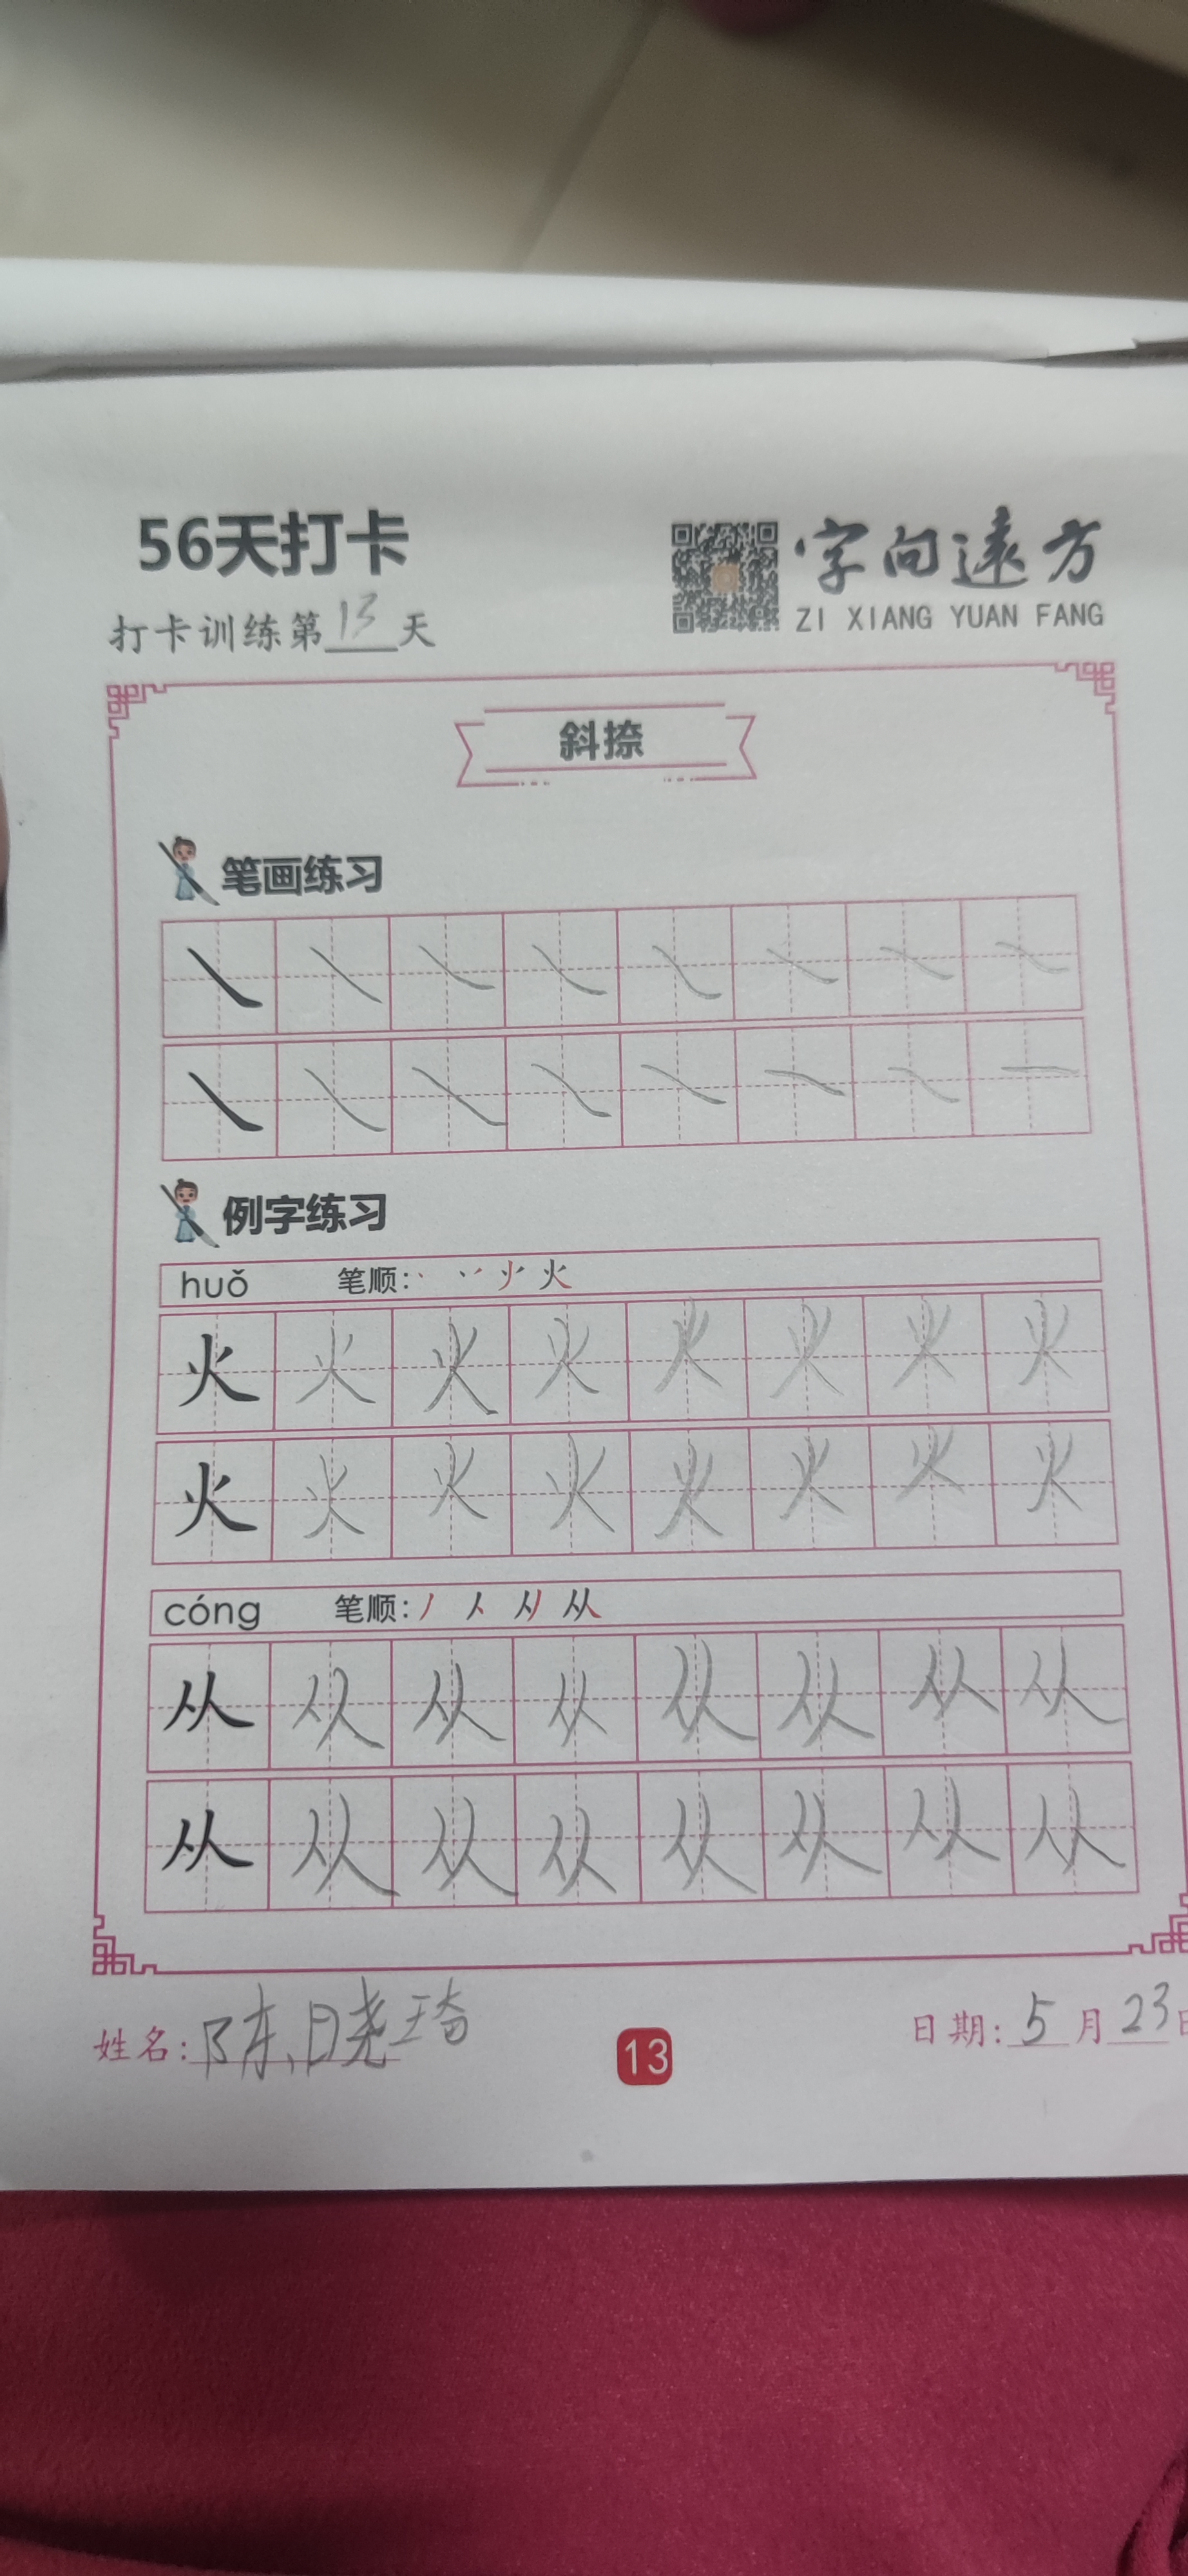 56天打卡
字向遠方
打卡训练第13天
ZI XIANG YUAN FANG
斜捺
笔画练习
例字练习
huǒ 笔顺: 火
火 火 火 火 火 火 火 火
火 火 火 火 火 火 火 火
cóng 笔顺: 丿 人 从
从 从 从 从 从 从 从 从
从 从 从 从 从 从 从 从
姓名: 陈晓琦 13 日期: 5月23日